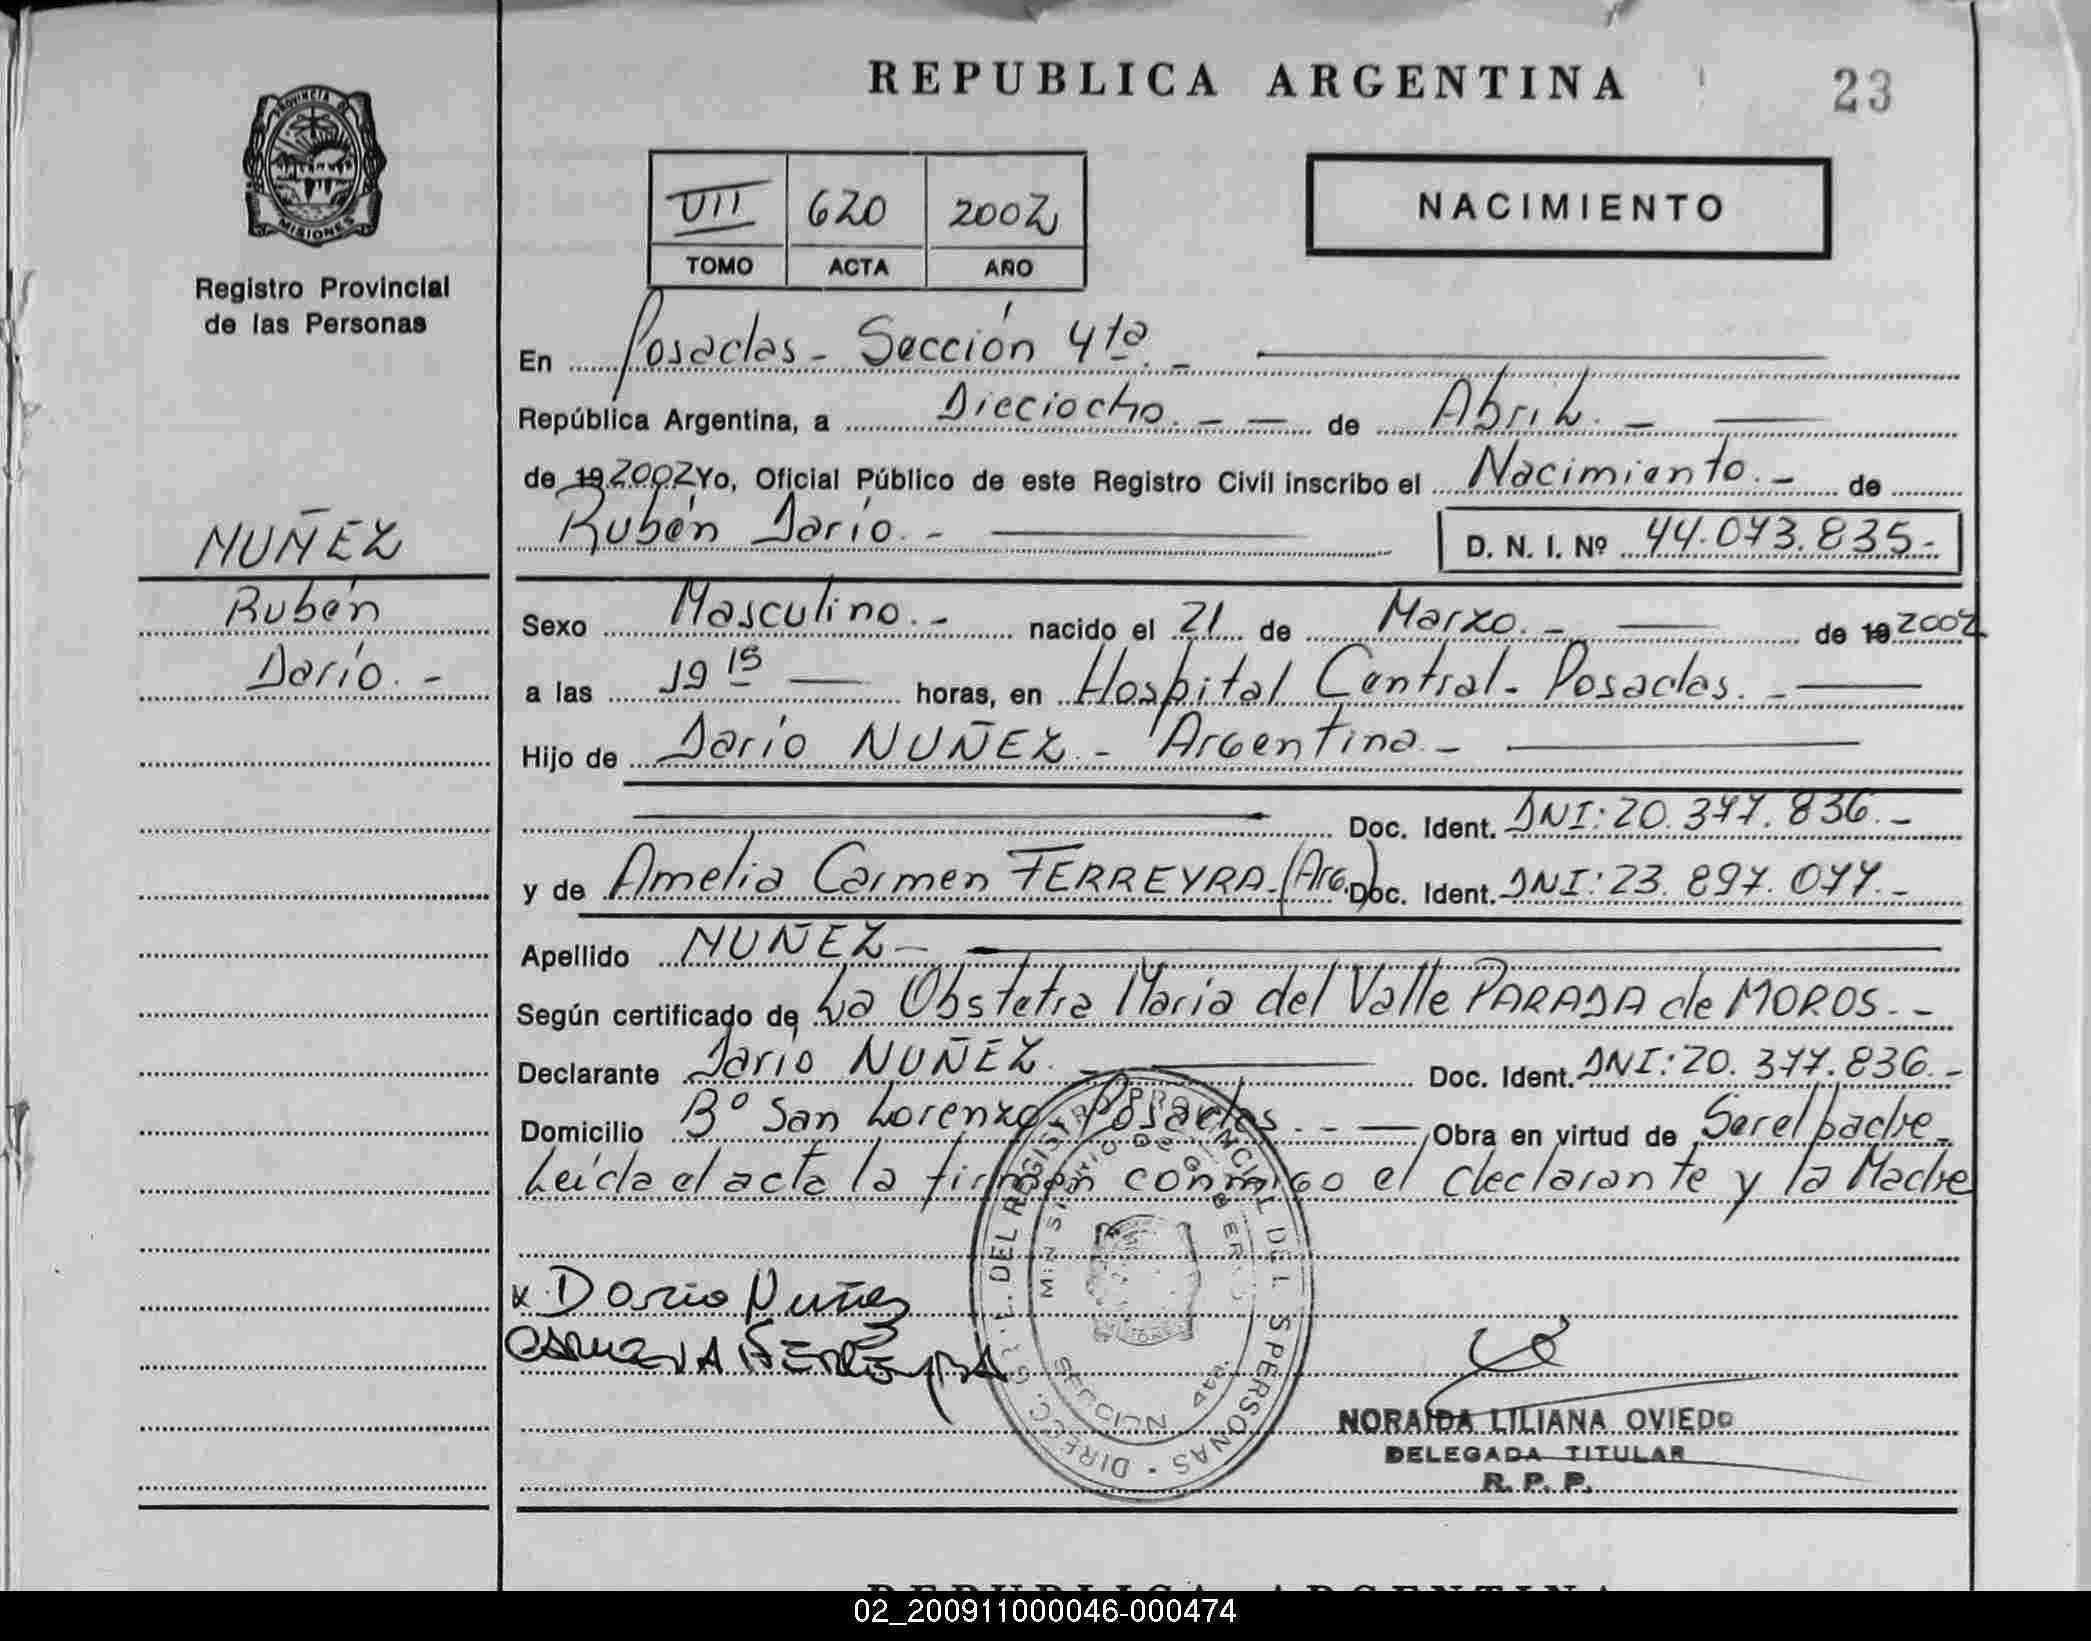 REPUBLICA ARGENTINA
23
PROVINCIA DE MISIONES
Registro Provincial
de las Personas
VII 620 2002
TOMO ACTA AÑO
NACIMIENTO
En Posadas - Sección 4ta. -
República Argentina, a Dieciocho. - - de Abril. -
de 19 2002 Yo, Oficial Público de este Registro Civil inscribo el Nacimiento. - de
Rubén Darío. - D. N. I. Nº 44.073.835.-
NUÑEZ
Rubén
Darío. -
Sexo Masculino. - nacido el 21 de Marzo. - de 19 2002
a las 19 15 horas, en Hospital Central - Posadas. -
Hijo de Darío NUÑEZ. - Argentina -
Doc. Ident. DNI: 20.377.836. -
y de Amelia Carmen FERREYRA. (Arg.) Doc. Ident. DNI: 23.897.077. -
Apellido NUÑEZ -
Según certificado de La Obstetra María del Valle PARADA de MOROS. -
Declarante Darío NUÑEZ. - Doc. Ident. DNI: 20.377.836. -
Domicilio Bº San Lorenzo Posadas. - Obra en virtud de Ser el padre -
Leída el acta la firman conmigo el declarante y la Madre
x Dario Nuñez
FERREYRA
DIRECC. GRAL. DEL REGISTRO PROVINCIAL DE LAS PERSONAS
MINISTERIO DE GOBIERNO
NORAIDA LILIANA OVIEDO
DELEGADA TITULAR
R. P. P.
REPUBLICA ARGENTINA
02_200911000046-000474